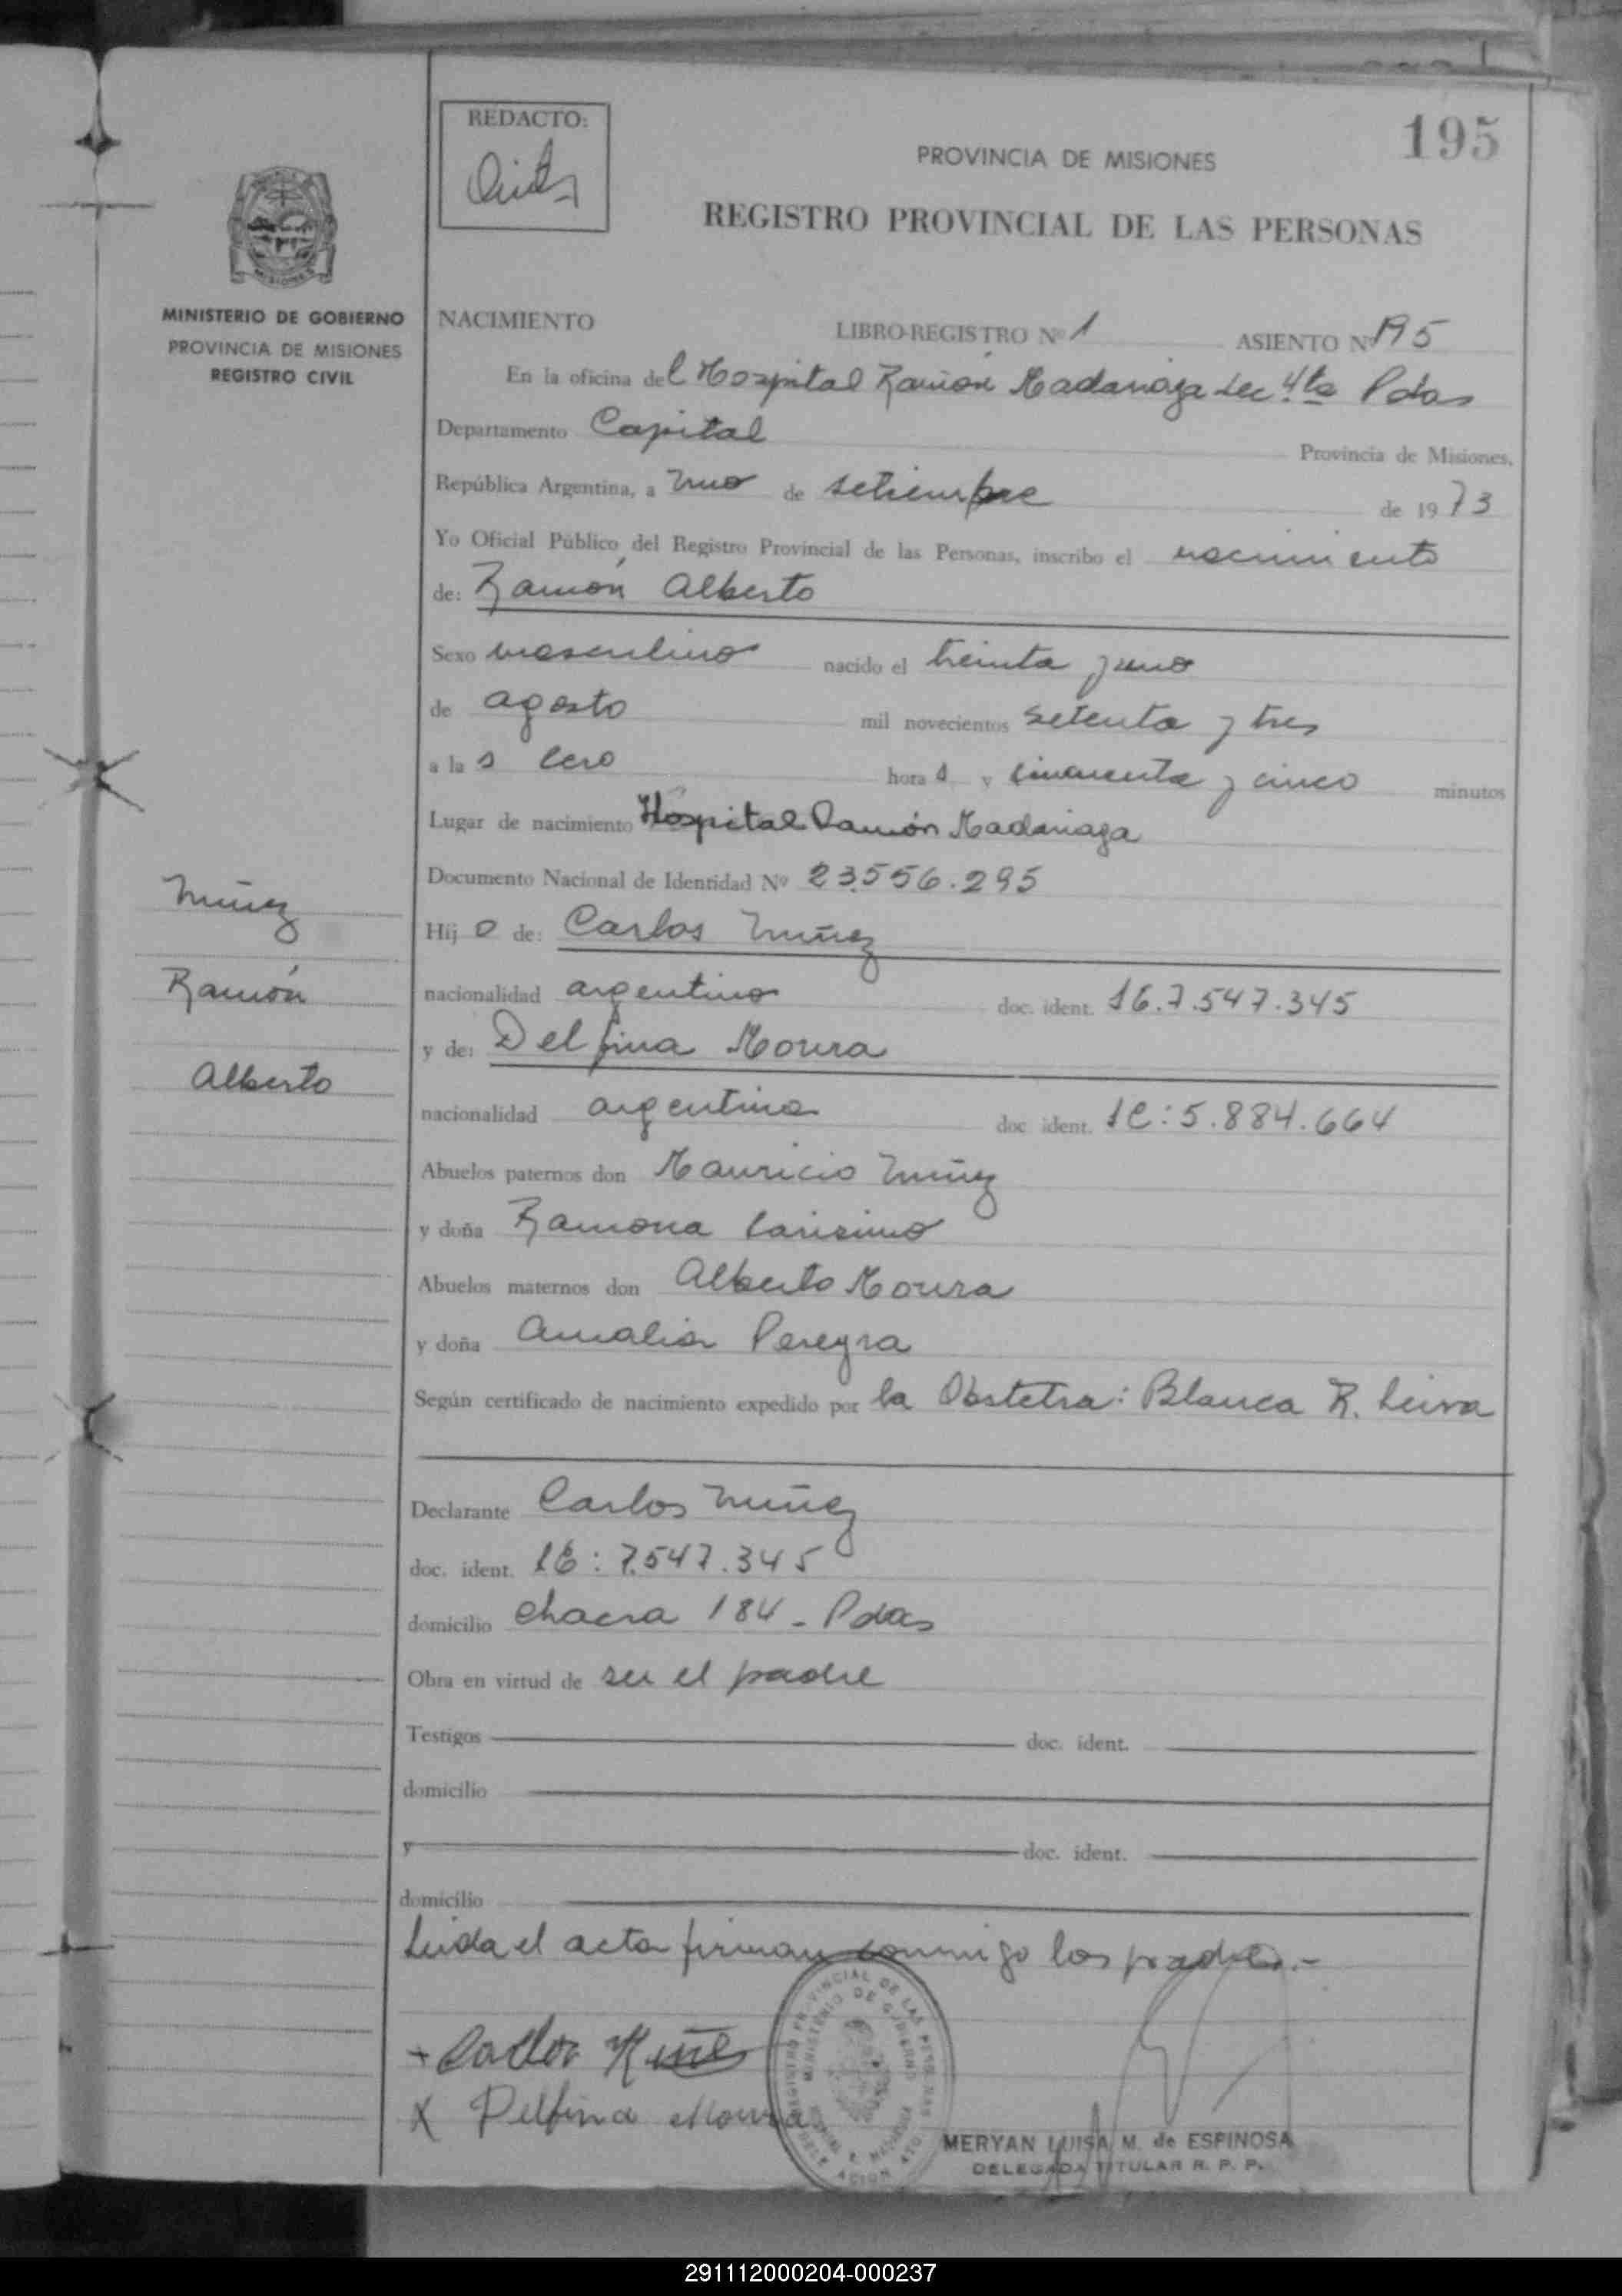 195
REDACTO:
PROVINCIA DE MISIONES
REGISTRO PROVINCIAL DE LAS PERSONAS
MISIONES
MINISTERIO DE GOBIERNO
PROVINCIA DE MISIONES
REGISTRO CIVIL
NACIMIENTO LIBRO-REGISTRO Nº 1 ASIENTO Nº 195
En la oficina del Hospital Ramón Madariaga Sec 4ta Pdas
Departamento Capital Provincia de Misiones,
República Argentina, a uno de setiembre de 1973
Yo Oficial Público del Registro Provincial de las Personas, inscribo el nacimiento
de: Ramón Alberto
Sexo masculino nacido el treinta y uno
de agosto mil novecientos setenta y tres
a las cero horas y cincuenta y cinco minutos
Lugar de nacimiento Hospital Ramón Madariaga
Documento Nacional de Identidad Nº 23.556.295
Hijo de: Carlos Nuñez
nacionalidad argentino doc. ident. 16.7.547.345
y de: Delfina Moura
nacionalidad argentina doc. ident. 1C: 5.884.664
Abuelos paternos don Mauricio Nuñez
y doña Ramona Carisimo
Abuelos maternos don Alberto Moura
y doña Amalia Pereyra
Según certificado de nacimiento expedido por la Obstetra: Blanca R. Leiva
Declarante Carlos Nuñez
doc. ident. 16: 7.547.345
domicilio chacra 184 - Pdas
Obra en virtud de ser el padre
Testigos doc. ident.
domicilio
y doc. ident.
domicilio
Leida el acta firman conmigo los padres.-
Nuñez
Ramón
Alberto
+ Carlos Nuñe
X Delfina Moura
REGISTRO PROVINCIAL DE LAS PERSONAS
MINISTERIO DE GOBIERNO
MERYAN LUISA M. de ESPINOSA
DELEGADA TITULAR R. P. P.
291112000204-000237